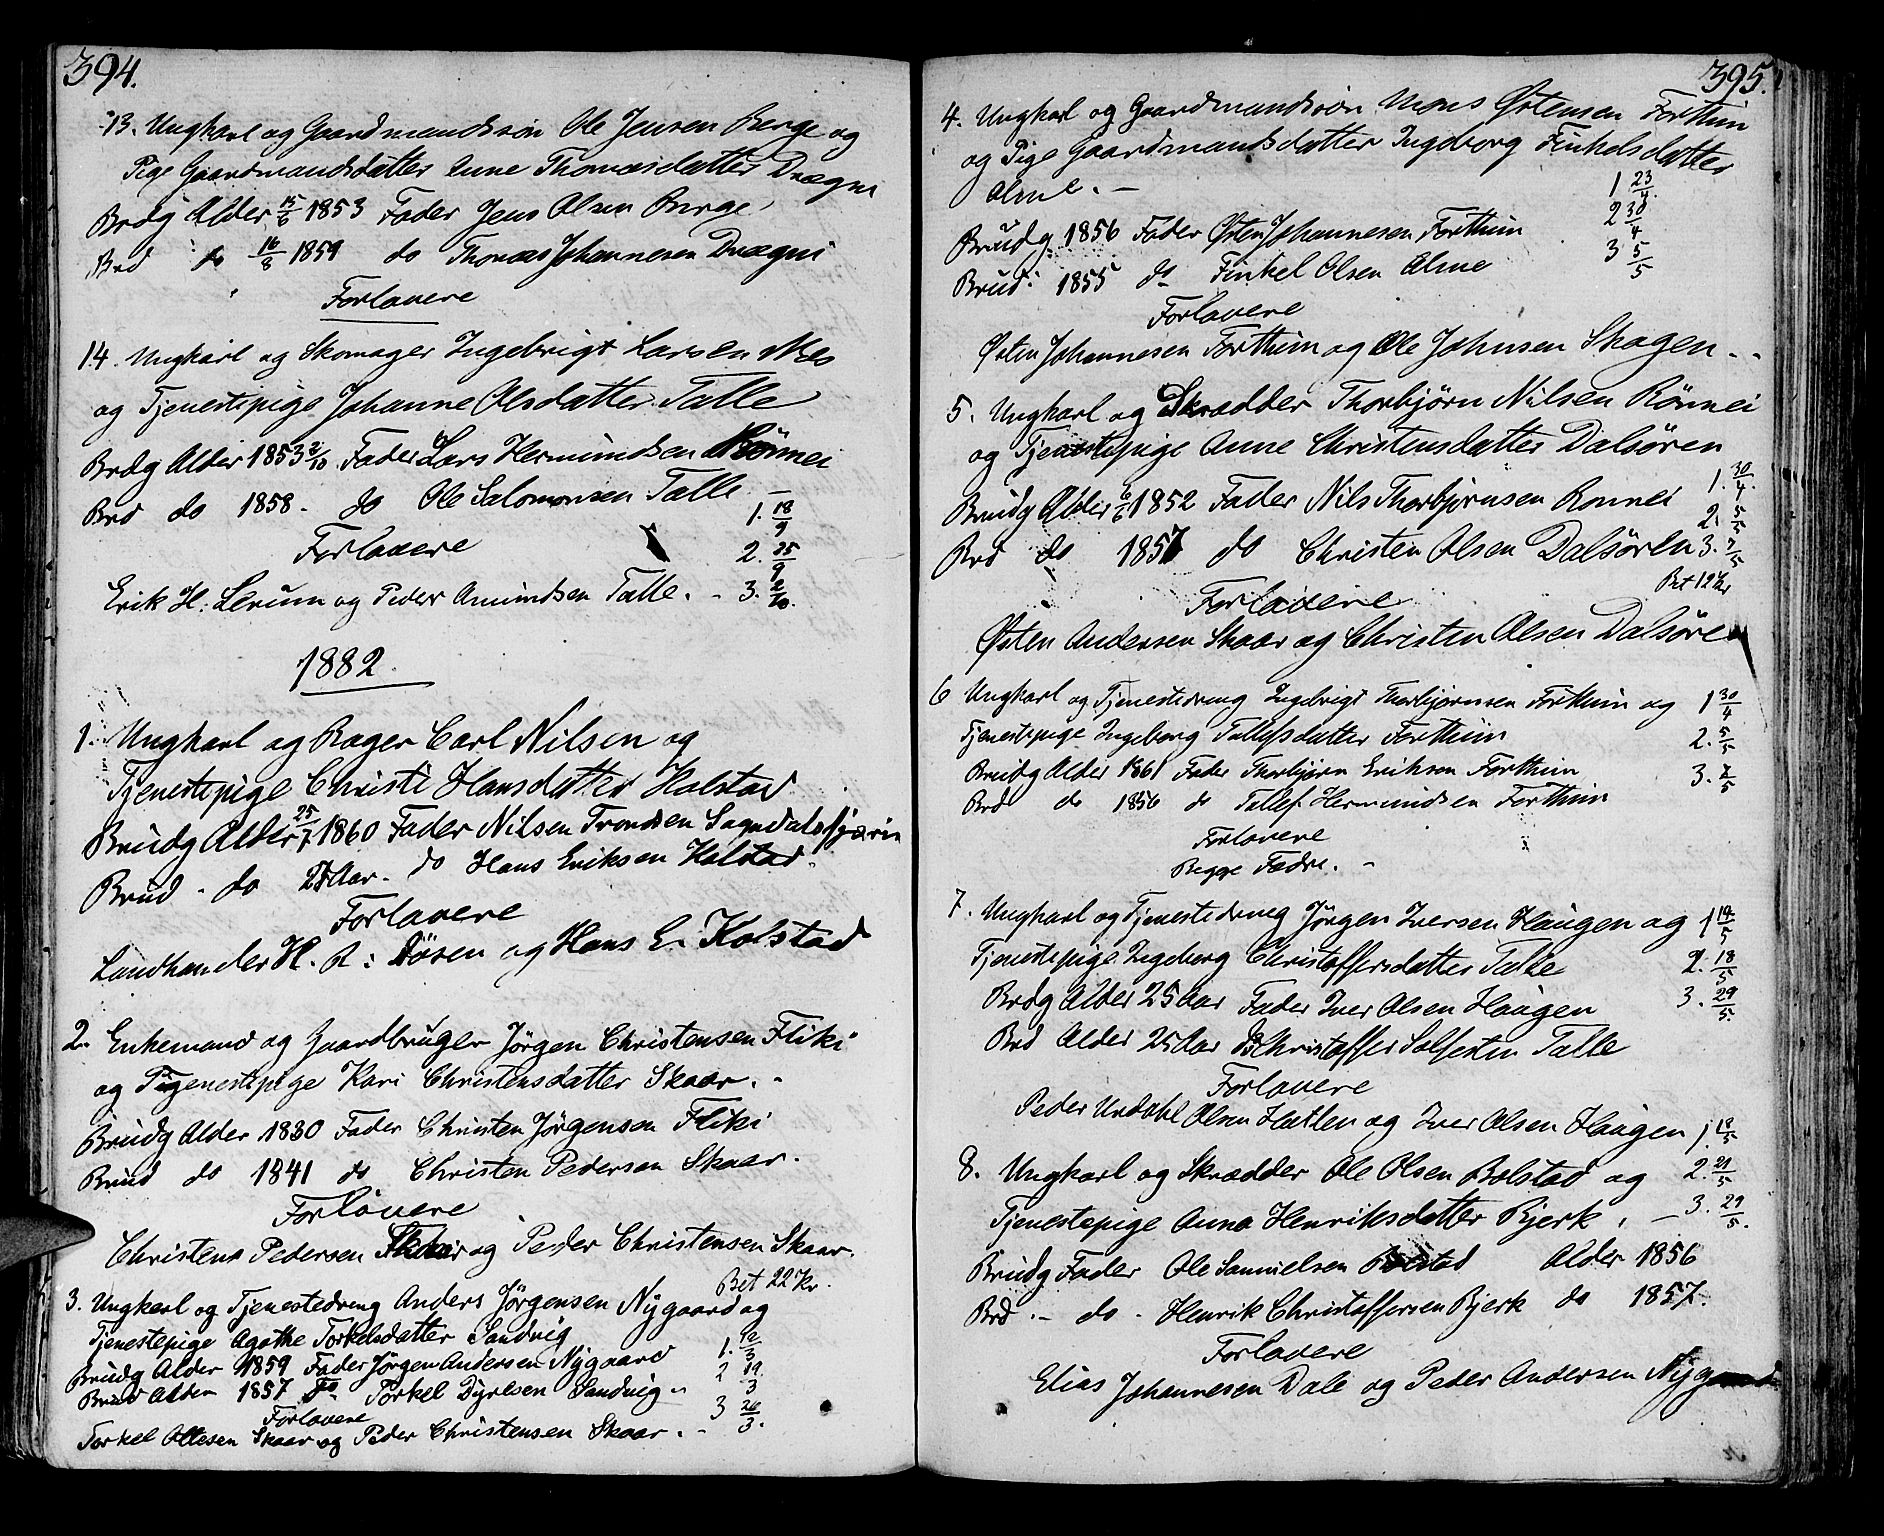 394.
13. Ungkarl og Gaardmandssøn Ole Jensen Berge og
Pige Gaardmandsdatter Anne Thomasdatter Drægni
Brdg Alder 15/6 1853 Fader Jens Olsen Berge
Brd do 16/8 1859 do Thomas Johannesen Drægni
Forlovere
14. Ungkarl og Skomager Ingebrigt Larsen Moe
og Tjenestepige Johanne Olsdatter Talle
Brdg Alder 1853 2/10 Fader Lars Hermundsen Rönnei
Brd do 1858 - do Ole Salomonsen Talle -
1. 18/9
Forlovere
2. 25/9
Erik H: Lerum og Peder Amundsen Talle. - 3. 2/10.
1882
1. Ungkarl og Bager Carl Nilsen og
Tjenestepige Christi Hansdatter Kolstad
Brudg Alder 25/7 1860 Fader Nilsen Trondsen Sogndalsfjæren
Brud - do 25 Aar - do Hans Eriksen Kolstad
Forlovere
Landhandler H. R: Døsen og Hans E. Kolstad
2. Enkemand og Gaardbruger Jørgen Christensen Fliki
og Tjenestepige Kari Christensdatter Skaar. -
Brudg Alder 1830 Fader Christen Jørgensen Fliki
Brud do 1841 do Christen Pedersen Skaar.
Forlovere
Christen Pedersen Skaar og Peder Christensen Skaar.
Bet 22 Kr.
3. Ungkarl og Tjenestedreng Anders Jørgensen Nygaard og
Tjenestepige Agathe Torkelsdatter Sandvig
1. 12/3
Brudg Alder 1859 Fader Jørgen Andersen Nygaard
2 19/3
Brud Alder 1857 do Torkel Dyrlsen Sandvig -
3 26/3.
Forlovere
Torkel Ottesen Skaar og Peder Christensen Skaar. -
395.
4. Ungkarl og Gaardmandssøn Mons Østensen Forthun
og Pige Gaardmandsdatter Ingeborg Finkelsdatter
Alme. -
1 23/4.
Brudg 1856 Fader Østen Johannesen Forthun
2 30/4
Brud: 1855 do Finkel Olsen Alme
3 5/5
Forlovere
Østen Johannesen Forthun og Ole Johnsen Skagen - .
5. Ungkarl og Skrædder Thorbjørn Nilsen Rönnei
og Tjenestepige Anne Christensdatter Dalsøren
Brudg Alder 6/6 1852 Fader Nils Thorbjørnsen Ronnei
1. 30/4.
2. 5/5
Brd do 1857 do Christen Olsen Dalsøren 3. 7/5
Bet 12 Kr
Forlovere
Østen Andersen Skaar og Christen Olsen Dalsøren
6 Ungkarl og Tjenestedreng Ingebrigt Thorbjørnsen Forthun og 1 30/4
Tjenestepige Ingeborg Tollefsdatter Forthun
2. 5/5
Brudg Alder 1861 Fader Thorbjørn Eriksen Forthun
3. 7/5
Brd do 1856 do Tollef Hermundsen Forthun
Forlovere
Begge Fædre. -
7. Ungkarl og Tjenestedreng Jørgen Iversen Haugen og 1 14/5
Tjenestepige Ingeborg Christoffersdatter Talle
2. 18/5
Brdg Alder 25 Aar Fader Iver Olsen Haugen
3. 29/5.
Brd Alder 25 Aar do Christoffer Solfesten Talle
Forlovere
Peder Undahl Olsen Hatlen og Iver Olsen Haugen
1 18/5
8. Ungkarl og Skrædder Ole Olsen Bolstad og
2. 21/5
Tjenestepige Anna Henriksdatter Bjerk.
3. 29/5.
Brudg Fader Ole Samuelsen Bolstad Alder 1856
Brd. - do - Henrik Christoffersen Bjerk do 1857.
Forlovere
Elias Johannesen Dale og Peder Andersen Nygaard